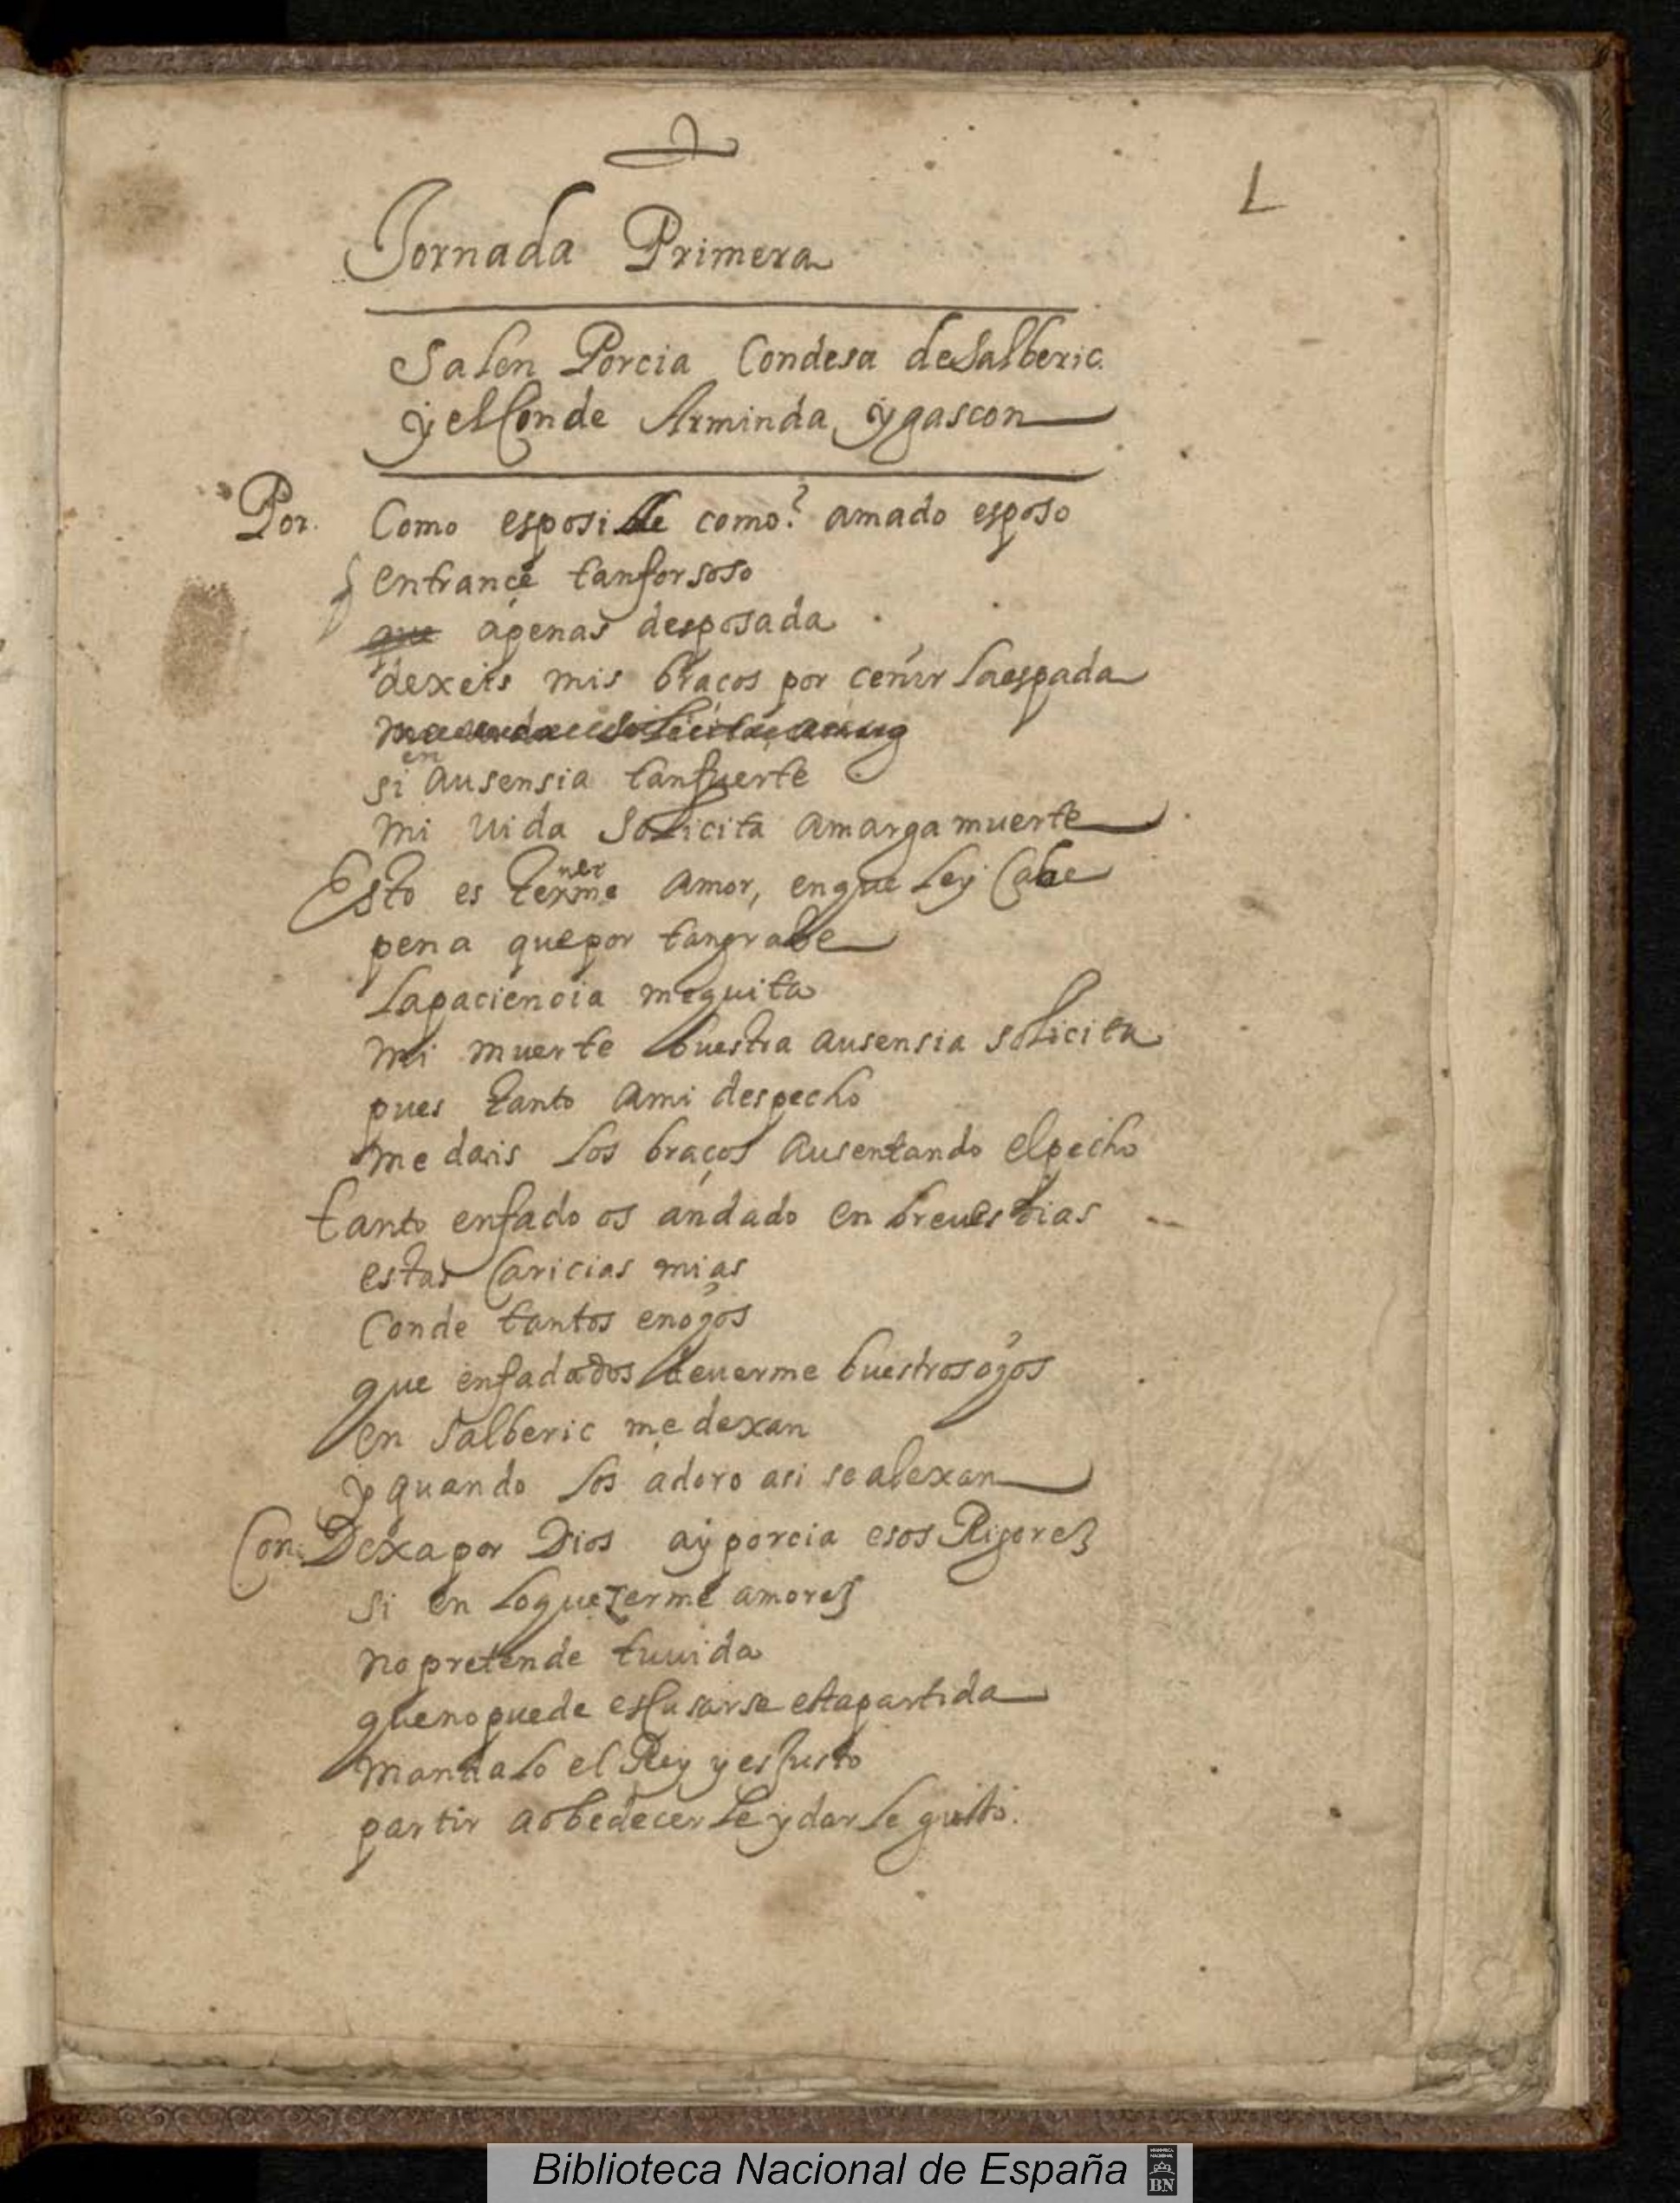 L
Jornada Primera
Salen Porcia Condesa de Salberic.
y el Conde Arminda, y gascon
Por. Como esposible como? amado esposo
entrançe tanforsoso
que apenas desposada
dexeis mis braços por ceñir laespada
si en ausensia tanfuerte
mi uida Solicita amarga muerte
Esto es tenerme amor, enque ley Cabe
pena quepor tangrabe
lapaciencia mequita
mi muerte buestra ausensia solicita
pues tanto ami despecho
me dais los braços ausentando elpecho
tanto enfado os andado en breues dias
estas Caricias mias
Conde tantos enojos
que enfadados deuerme buestrosojos
en Salberic me dexan
y quando los adoro asi sealexan
Con. Dexapor Dios ay porcia esos Rigores
si en loquererme amores
nopretende tuuida
quenopuede escusarse estapartida
mandalo el Rey y esJusto
partir aobedecerle ydarle gusto.
Biblioteca Nacional de España
BN